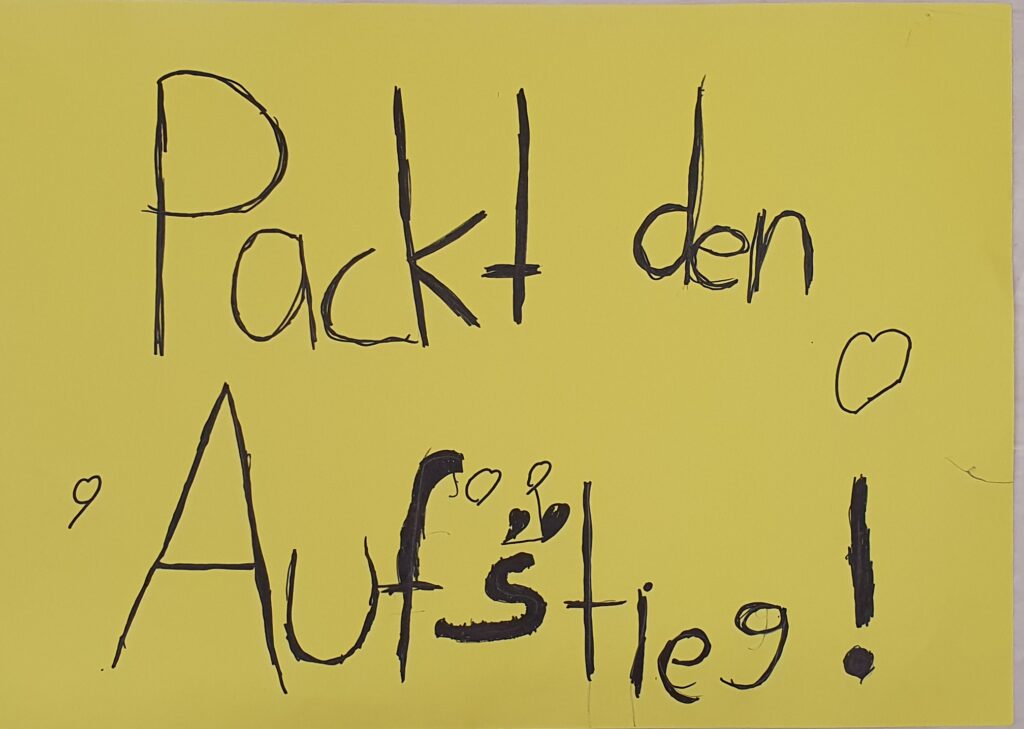 Packt den
Aufstieg!